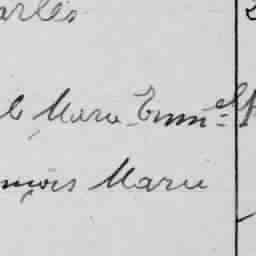 arles
Marie Emm.el
nçois Marie